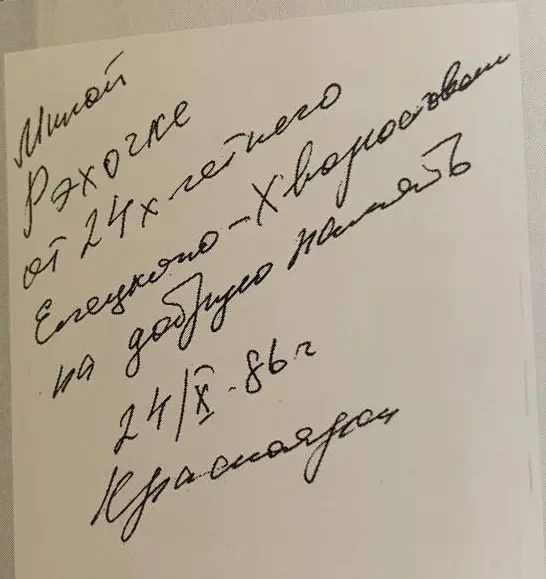 Милой
Рэхочке
от 24х летнего
Елецкого-Хворостова
на добрую память
24/X.86г
Красноярск